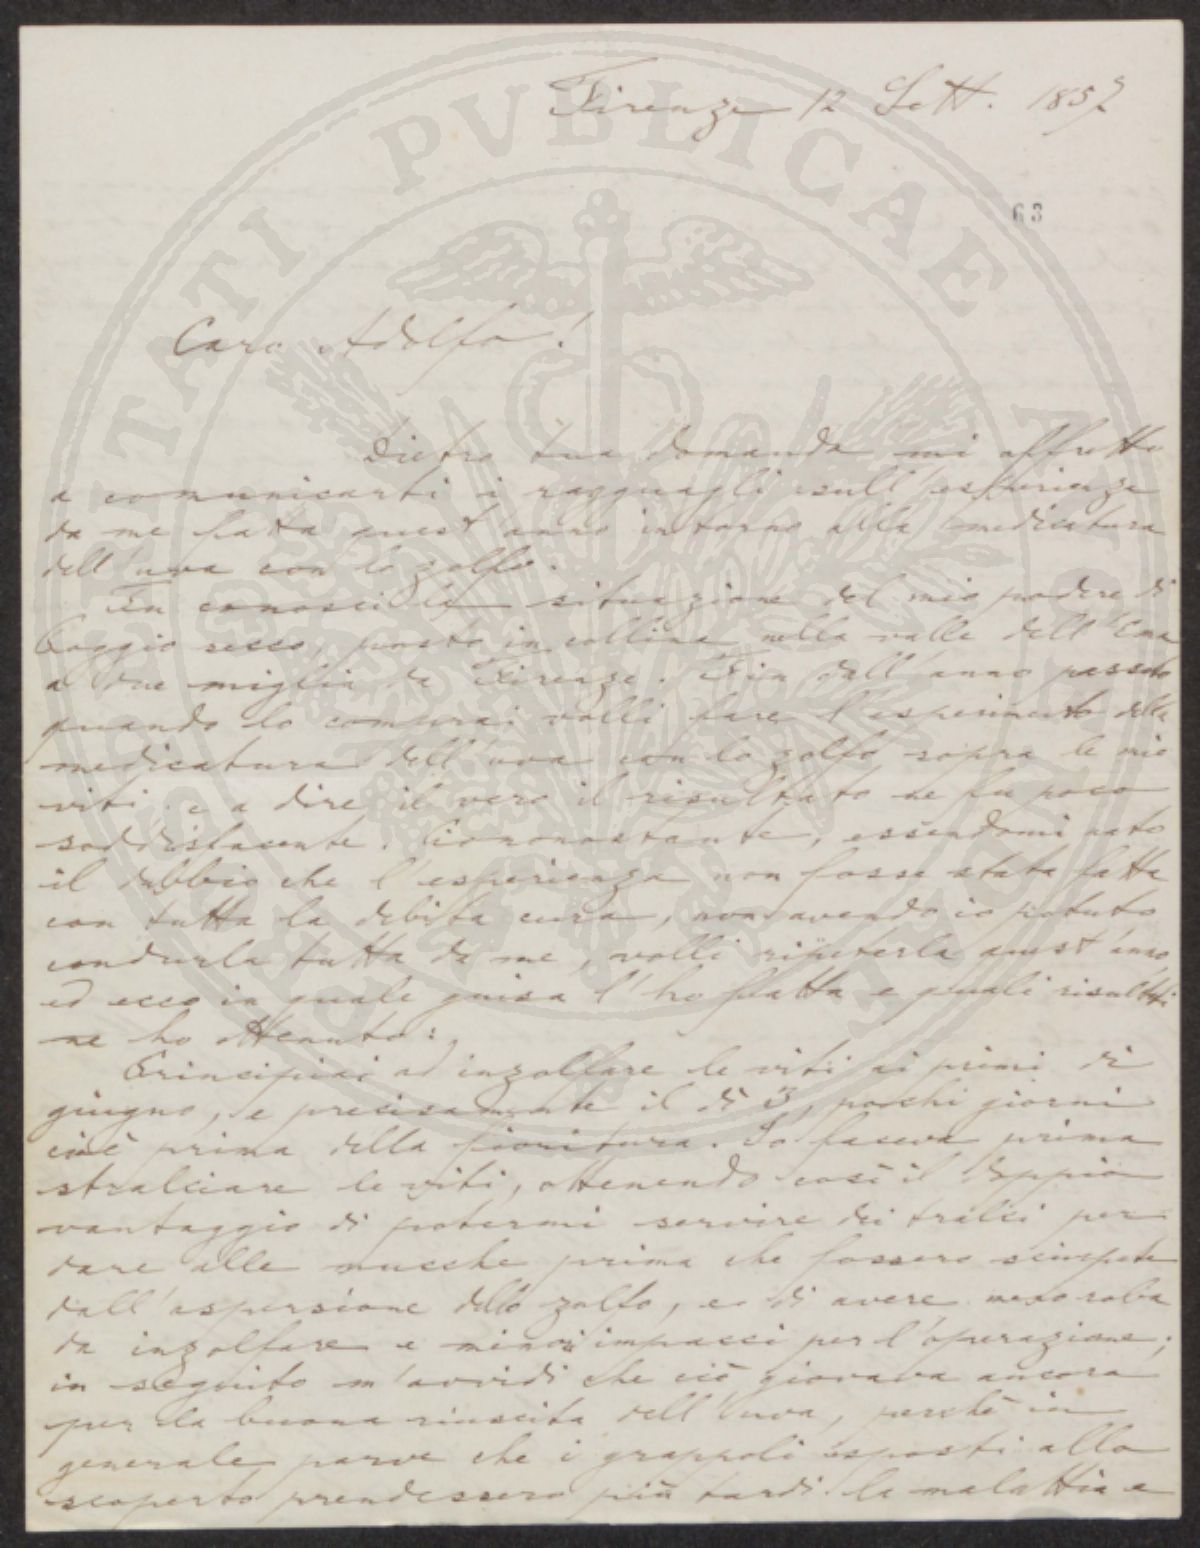 Firenze 12 Sett. 1857
63
Caro Adolfo!
Dietro tua domanda mi affretto
a comunicarti i ragguagli sull'esperienza
da me fatta quest'anno intorno alla medicatura
dell'uva con lo zolfo.
Tu conosci la situazione del mio podere di
Poggio secco, posto in collina nella valle dell'Ema
a due miglia da Firenze. Fin dall'anno passato
quando lo comprai volli fare l'esperimento della
medicatura dell'uva con lo zolfo sopra le mie
viti e a dire il vero il risultato ne fu poco
soddisfacente. Ciononostante, essendomi nato
il dubbio che l'esperienza non fosse stata fatta
con tutta la debita cura, non avendo io potuto
condurla tutta da me, volli ripeterla quest'anno,
ed ecco in quale guisa l'ho fatta e quali risultati
ne ho ottenuto:
Principiai ad inzolfare le viti ai primi di
giugno, e precisamente il dì 3, pochi giorni
cioè prima della fioritura. Io faceva prima
stralciare le viti, ottenendo così il doppio
vantaggio di potermi servire dei tralci per
dare alle mucche prima che fossero sciupate
dall'aspersione dello zolfo, e di avere meno roba
da inzolfare e minori impacci per l'operazione;
in seguito m'avvidi che ciò giovava ancora
per la buona riuscita dell'uva, perché in
generale parve che i grappoli esposti allo
scoperto prendessero più tardi la malattia e